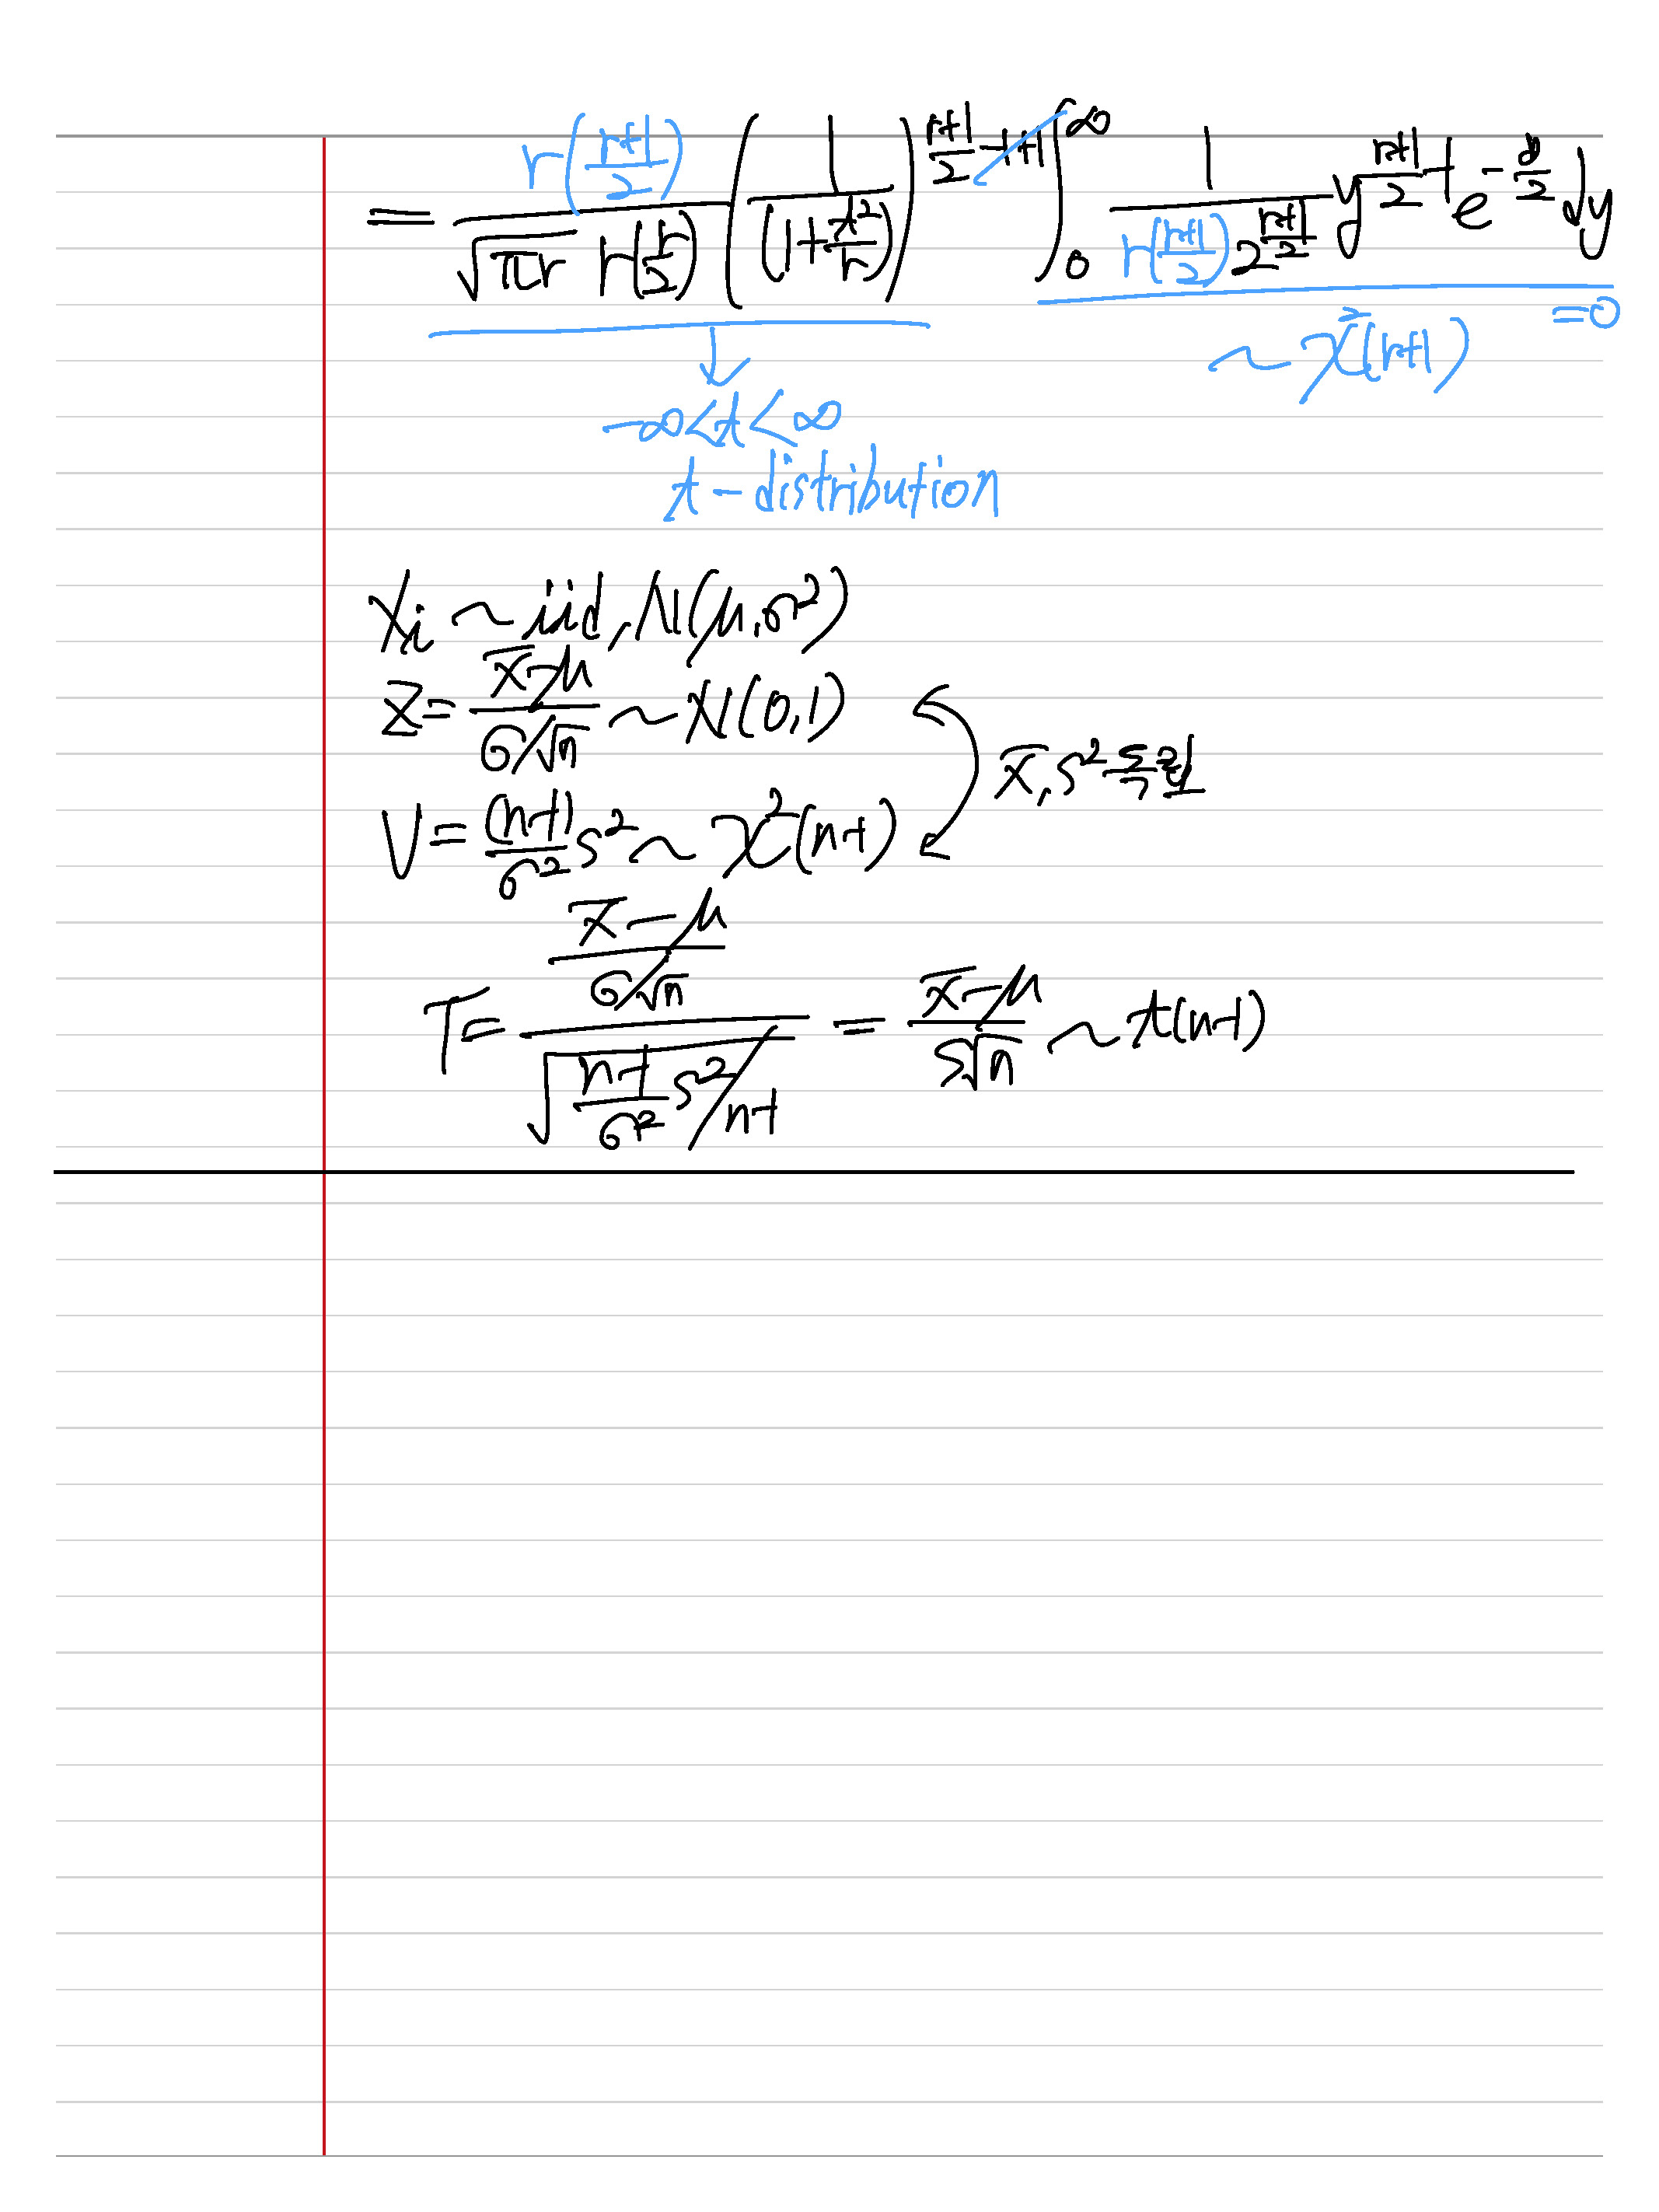 = Γ((r+1)/2) / (√(πr) Γ(r/2)) (1/(1+t²/r))^((r+1)/2 -1+1) ∫₀^∞ 1/(Γ((r+1)/2) 2^((r+1)/2)) y^((r+1)/2 -1) e^(-y/2) dy
~ χ²(r+1) =0
-∞<t<∞
t-distribution
Xi ~ iid, N(μ,σ²)
Z = (x̄-μ)/(σ/√n) ~ N(0,1)
x̄, s² 독립
V = (n-1)/σ² s² ~ χ²(n-1)
T = ((x̄-μ)/(σ/√n)) / √((n-1)/σ² s²/n-1) = (x̄-μ)/(s√n) ~ t(n-1)